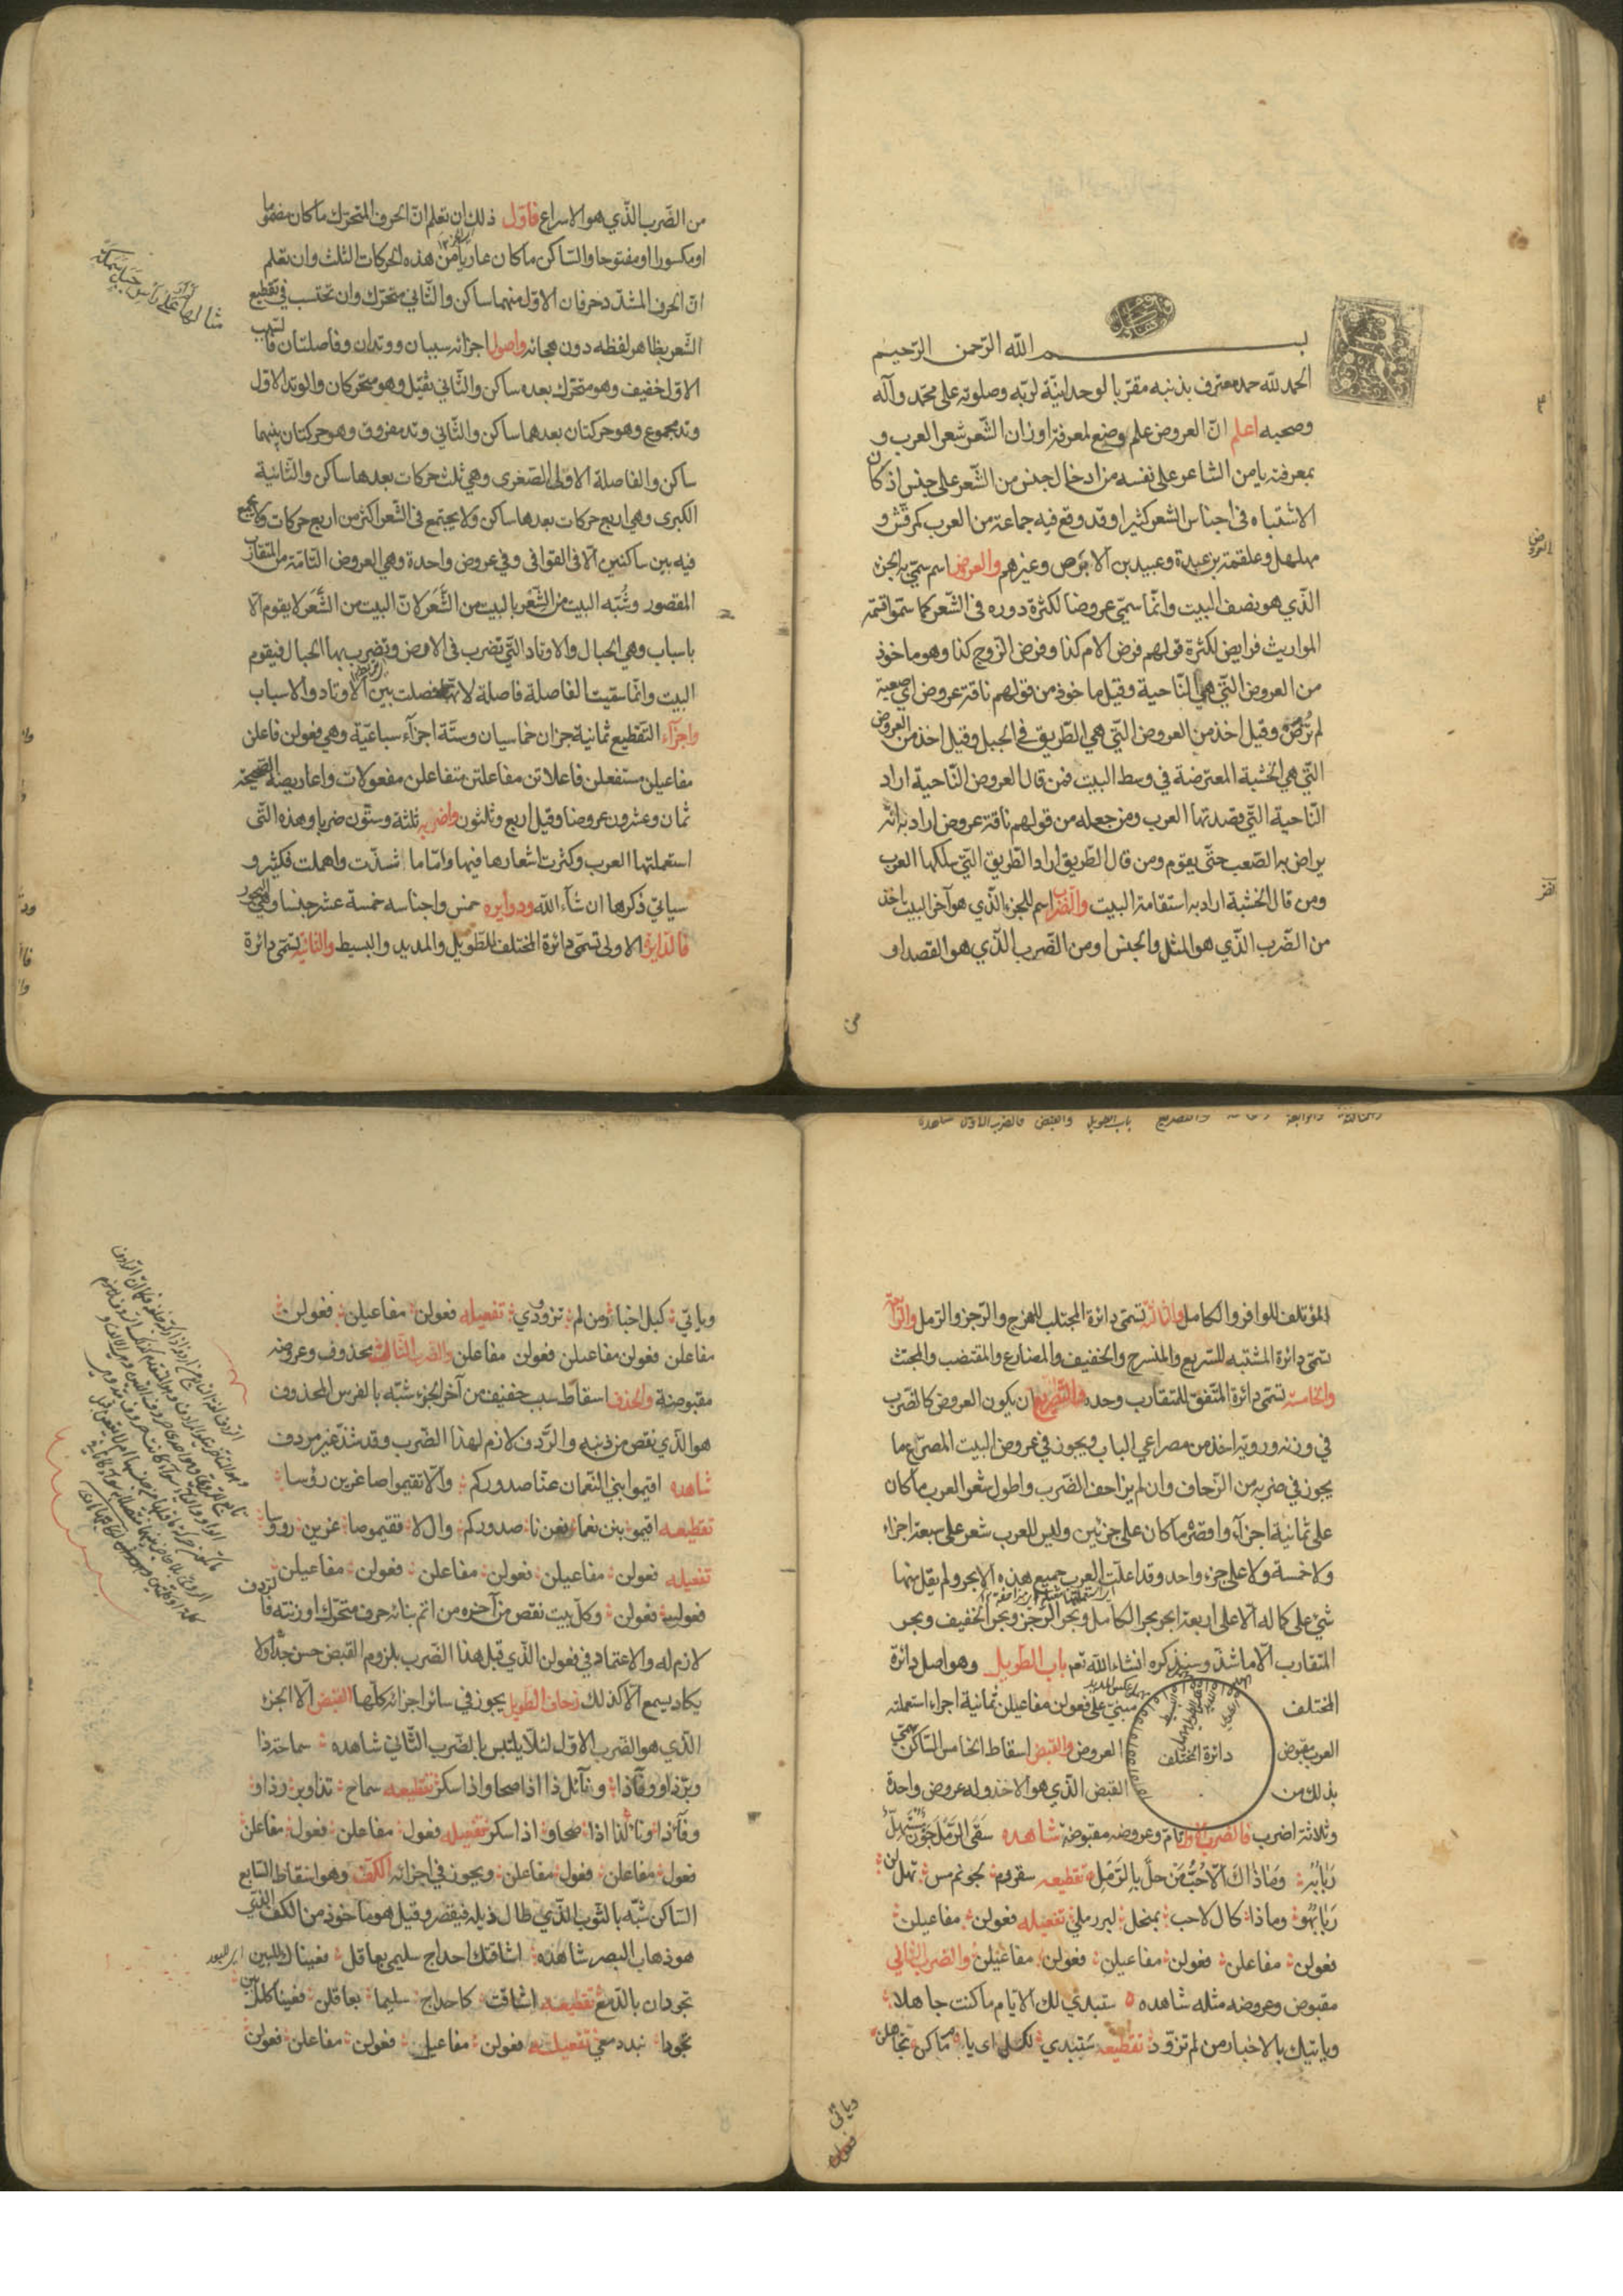 بسم الله الرحمن الرحيم
الحمد لله حمد معترف بذنبه مقرّ بالوحدانيّة لربّه وصلوته على محمّد وآله
وصحبه اعلم انّ العروض علم وضع لمعرفة اوزان الشّعر شعر العرب و
بمعرفته يامن الشاعر على نفسه من ادخال جنس من الشّعر على جنس اذ كان
الاشتباه فى اجناس الشعر كثيرا وقد وقع فيه جماعة من العرب كمرقّش و
مهلهل وعلقمة بن عبدة وعبيد بن الابرص وغيرهم والعروض اسم سمّي به الجزء
الّذي هو نصف البيت وانّما سمّي عروضا لكثرة دوره فى الشّعر كما سمّوا قسمة
المواريث فرايض لكثرة قولهم فرض الام كذا وفرض الزوج كذا وهو ماخوذ
من العروض التي هي النّاحية وقيل ماخوذ من قولهم ناقة عروض اي صعبة
لم تُرَضْ وقيل اخذ من العروض الّتي هي الطّريق في الجبل وقيل اخذ من العروض
التّي هي الخشبة المعترضة في وسط البيت فمن قال العروض النّاحية اراد
النّاحية الّتي قصدتها العرب ومن جعله من قولهم ناقة عروض اراد به انّه
يراض به الصّعب حتّى يقوم ومن قال الطّريق اراد الطّريق الّتي سلكها العرب
ومن قال الخشبة اراد به استقامة البيت والضرب اسم للجزء الّذي هو آخر البيت اخذ
من الضّرب الّذي هو المثل والجنس او من الضّرب الّذي هو القصد او
من
من الضّرب الّذي هو الاسراع فاوّل ذلك ان تعلم انّ الحرف المتحرّك ما كان مضموما
او مكسورا او مفتوحا والسّاكن ما كان عاريا من هذه الحركات الثلث وان تعلم
انّ الحرف المشدّد حرفان الاوّل منهما ساكن والثّاني متحرّك وان تحتسب في تقطيع
الشّعر بظاهر لفظه دون هجائه واصول اجزائه سببان ووتدان وفاصلتان فالسبب
الاوّل خفيف وهو متحرّك بعده ساكن والثّاني ثقيل وهو متحركان والوتد الاوّل
وتد مجموع وهو حركتان بعدهما ساكن والثّاني وتد مفروق وهو حركتان بينهما
ساكن والفاصلة الاولى الصّغرى وهي ثلث حركات بعدها ساكن والثّانية
الكبرى وهي اربع حركات بعدها ساكن ولا يجتمع فى الشّعر اكثر من اربع حركات ولا يجمع
فيه بين ساكنين الّا فى القوافى وفي عروض واحدة وهي العروض التّامّة من المتقارب
المقصور وشُبّه البيت من الشِّعر بالبيت من الشَّعَر لانّ البيت من الشَّعَر لا يقوم الّا
باسباب وهي الحبال والاوتاد الّتي تضرب فى الارض وتضرب بها الحبال فيقوم
البيت وانّما سمّيت الفاصلة فاصلة لانّها فصلت بين الاوتاد والاسباب
واجزآء التّقطيع ثمانية جزان خماسيان وستّة اجزآء سباعيّة وهي فعولن فاعلن
مفاعيلن مستفعلن فاعلاتن مفاعلتن متفاعلن مفعولات واعاريضه الصّحيحة
ثمان وعشرون عروضا وقيل اربع وثلثون واضربه ثلثة وستّون ضربا وهذه التّى
استعملتها العرب وكثرت اشعارها فيها وامّا ما شذّت واهملت فكثير و
سياتي ذكرها ان شآء الله ودوآيره خمس واجناسه خمسة عشر جنسا وهي البحور
فالدّايرة الاولى تسمّى دائرة المختلف للطّويل والمديد والبسيط والثانية تسمّى دائرة
المؤتلف للوافر والكامل والثالثة تسمّى دائرة المجتلب للهزج والرّجز والرّمل والرّابعة
تسمّى دائرة المشتبه للسّريع والمنسرح والخفيف والمضارع والمقتضب والمجتث
والخامسة تسمّى دائرة المتّفق للمتقارب وحده فالتّصريع ان يكون العروض كالضّرب
في وزنه ورويّه اخذ من مصراعي الباب ويجوز في عروض البيت المصرّع ما
يجوز في ضربه من الزّحاف وان لم يزاحف الضّرب واطول شعر العرب ما كان
على ثمانية اجزآء واقصره ما كان على جزئين وليس للعرب شعر على سبعة اجزاء
ولا خمسة ولا على جزء واحد وقد اعلّت العرب جميع هذه الابحر ولم يقل منها
شيء على كماله الّا على اربعة ابحر بحر الكامل وبحر الرّجز وبحر الخفيف وبحر
المتقارب الّا ما شذّ وسنذكره انشاء الله تعم باب الطّويل وهو اصل دائرة
المختلف مبنيّ على فعولن مفاعيلن ثمانية اجزاء استعملته
العرب مقبوض العروض والقبض اسقاط الخامس السّاكن سمّي
دائرة المختلف
بذلك من القبض الّذي هو الاخذ وله عروض واحدة
وثلاثة اضرب فالضرب الاول تامّ وعروضه مقبوضة شاهده سقى الرّمل جون مستهلّ
ربابه وما ذاك الّا حبّ من حلّ بالرّمل تقطيعه سقررم لجونمس تهللن
ربابهو وماذا كال لاحب بمنحل لبررملي تفعيله فعولن مفاعيلن
فعولن مفاعلن فعولن مفاعيلن فعولن مفاعيلن والضرب الثاني
مقبوض وعروضه مثله شاهده ستبدي لك الايّام ما كنت جاهلا
وياتيك بالاخبار من لم تزوّد تقطيعه ستبدي لكل اى يا م ماكن تجاهلن
وياتي
وياتي كبل اخبا رمن لم تزوودي تفعيله فعولن مفاعيلن فعولن
مفاعلن فعولن مفاعيلن فعولن مفاعلن والضرب الثالث محذوف وعروضه
مقبوضة والحذف اسقاط سبب خفيف من آخر الجزء شبّه بالفرس المحذوف
هو الّذي نقص من ذنبه والرّدف لازم لهذا الضّرب وقد شذّ غير مردف
شاهده اقيموا بني النّعمان عنّا صدوركم والّا تقيموا صاغرين رؤسا
تقطيعه اقيمو بننعما نعن نا صدوركم وال لا تقيموصا غرين رووسا
تفعيله فعولن مفاعيلن فعولن مفاعلن فعولن مفاعيلن
فعولن فعولن وكلّ بيت نقص من آخره من اتم بنائه حرف متحرّك او زنته فالرّدف
لازم له والاعتماد في فعولن الّذي قبل هذا الضّرب يلزوم القبض حسن جدّا ولا
يكاد يسمع الّا كذلك زحاف الطّويل يجوز في سائر اجزائه كلّها القبض الّا الجزء
الّذي هو الضّرب الاوّل لئلّا يلتبس بالضّرب الثّاني شاهده سماحة ذا
وبرّ ذا ووفآء ذا ونآئل ذا اذا صحا واذا سكر تقطيعه سماح تذاوبر رذاو
وفآءذا ونائ لذا اذا صحاو اذا سكر تفعيله فعول مفاعلن فعول مفاعلن
فعول مفاعلن فعول مفاعلن ويجوز في اجزائه الكفّ وهو اسقاط السّابع
السّاكن شبّه بالثّوب الّذي طال ذيله فيقصر وقيل هو ماخوذ من الكف الّذي
هو ذهاب البصر شاهده اشاقتك احداج سليمى بعاقل فعيناك للبين
تجودان بالدّمع تقطيعه اشاقت كاحداج سليما بعاقلن فعيناك للبين
تجودا نبددمعي تفعيله فعولن مفاعيلن فعولن مفاعلن فعولن